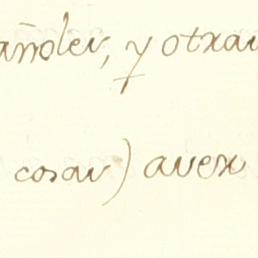 añoles, y otras
cosas) aver